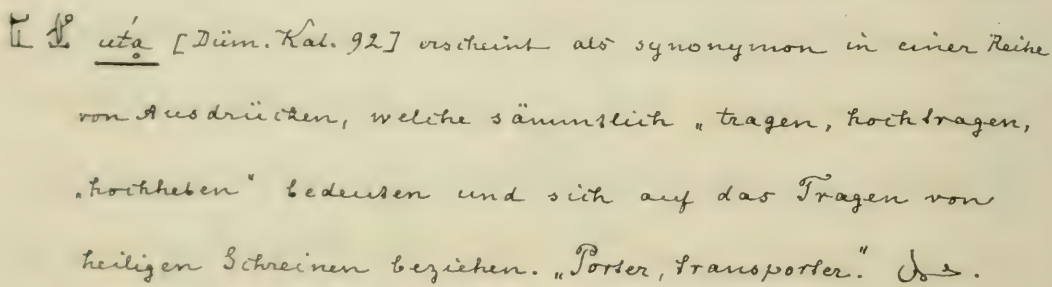 uṭá [Düm. Kal. 92] erscheint als synonymon in einer Reihe
von Ausdrücken, welche sämmtlich „tragen, hochtragen,
„hochheben“ bedeuten und sich auf das Tragen von
heiligen Schreinen beziehen. „Porter, transporter.“ حمل.